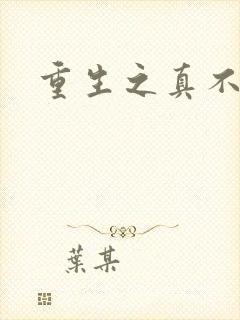 重生之真不
葉某